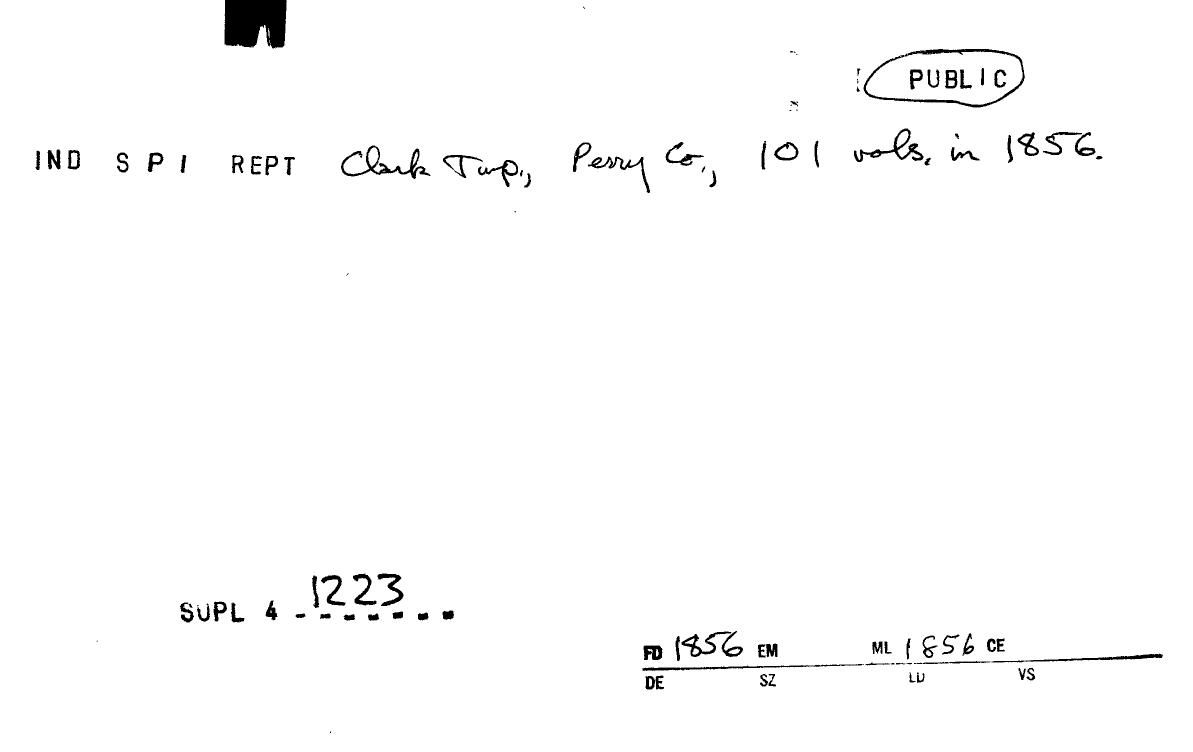 PUBLIC
IND S P I REPT Clark Twp., Perry Co., 101 vols. in 1856.
SUPL 4 1223
FD 1856 EM ML 1856 CE
DE SZ LD VS